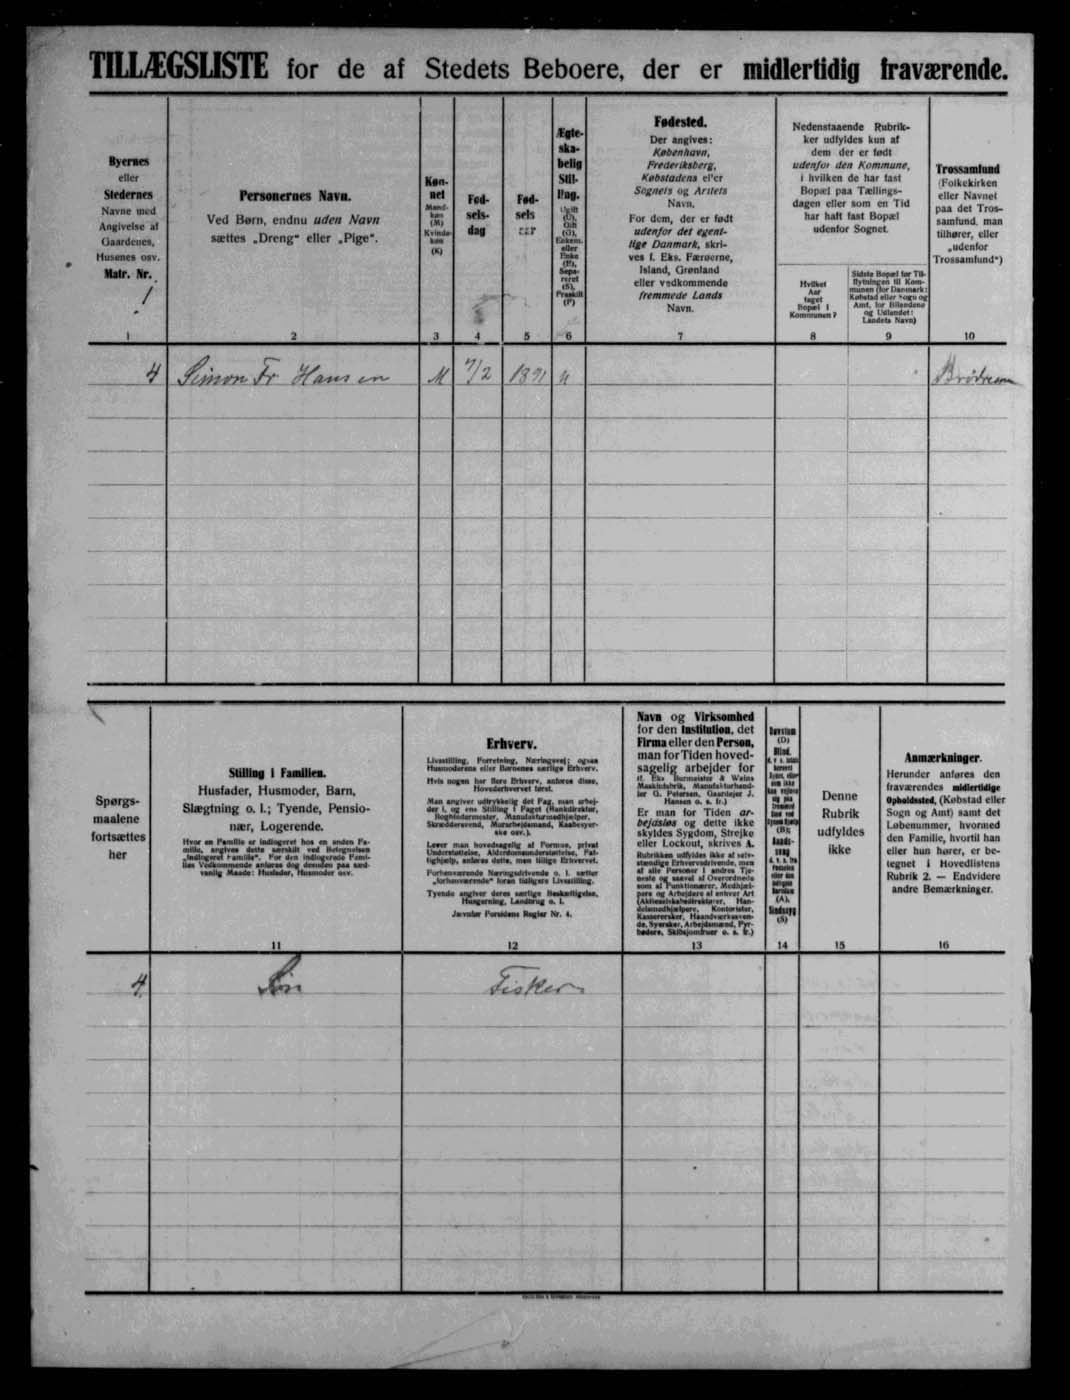 TILLÆGSLISTE for de af Stedets Beboere, der er midlertidig fraværende.
Byernes
eller
Stedernes
Navne med
Angivelse af
Gaardenes,
Husenes osv.
Matr. Nr.
1
1
Personernes Navn.
Ved Børn, endnu uden Navn
sættes „Dreng“ eller „Pige“.
2
Køn-
net
Mand-
køn
(M)
Kvinde-
køn
(K)
3
Fød-
sels-
dag
4
Fød-
sels
aar
5
Ægte-
ska-
belig
Stil-
ling.
Ugift
(U),
Gift
(G),
Enkem.
eller
Enke
(E),
Sepa-
reret
(S),
Fraskilt
(F)
6
Fødested.
Der angives:
København,
Frederiksberg,
Købstadens eller
Sognets og Amtets
Navn.
For dem, der er født
udenfor det egent-
lige Danmark, skri-
ves f. Eks. Færøerne,
Island, Grønland
eller vedkommende
fremmede Lands
Navn.
7
Nedenstaaende Rubrik-
ker udfyldes kun af
dem der er født
udenfor den Kommune,
i hvilken de har fast
Bopæl paa Tællings-
dagen eller som en Tid
har haft fast Bopæl
udenfor Sognet.
Hvilket
Aar
taget
Bopæl i
Kommunen?
8
Sidste Bopæl før Til-
flytningen til Kom-
munen (for Danmark:
Købstad eller Sogn og
Amt, for Bilandene
og Udlandet:
Landets Navn)
9
Trossamfund
(Folkekirken
eller Navnet
paa det Tros-
samfund, man
tilhører, eller
„udenfor
Trossamfund“)
10
4 Simon Fr Hansen M 7/2 1891 U
Spørgs-
maalene
fortsættes
her
Stilling i Familien.
Husfader, Husmoder, Barn,
Slægtning o. l.; Tyende, Pensio-
nær, Logerende.
Hvor en Familie er indlogeret hos en anden Fa-
milie, angives dette særskilt ved Betegnelsen
„indlogeret Familie“. For den indlogerede Fami-
lies Vedkommende anføres dog desuden paa sæd-
vanlig Maade: Husfader, Husmoder osv.
11
Erhverv.
Livsstilling, Forretning, Næringsvej; ogsaa
Husmoderens eller Børnenes særlige Erhverv.
Hvis nogen har flere Erhverv, anføres disse,
Hovederhvervet først.
Man angiver udtrykkelig det Fag, man arbej-
der i, og ens Stilling i Faget (Bankdirektør,
Bogbindermester, Manufakturmedhjælper,
Skræddersvend, Murarbejdsmand, Kaabesyer-
ske osv.).
Lever man hovedsagelig af Formue, privat
Understøttelse, Alderdomsunderstøttelse, Fat-
tighjælp, anføres dette, men tillige Erhvervet.
Forhenværende Næringsdrivende o. l. sætter
„forhenværende“ foran tidligere Livsstilling.
Tyende angiver deres særlige Beskæftigelse,
Husgerning, Landbrug o. l.
Jævnfør Forsidens Regler Nr. 4.
12
Navn og Virksomhed
for den Institution, det
Firma eller den Person,
man for Tiden hoved-
sagelig arbejder for
(f. Eks Burmeister & Wains
Maskinfabrik, Manufakturhand-
ler G. Petersen, Gaardejer J.
Hansen o. s. fr.)
Er man for Tiden ar-
bejdsløs og dette ikke
skyldes Sygdom, Strejke
eller Lockout, skrives A.
Rubrikken udfyldes ikke af selv-
stændige Erhvervsdrivende, men
af alle Personer i andres Tje-
neste og saavel af Overordnede
som af Funktionærer, Medhjæl-
pere og Arbejdere af enhver Art
(Aktieselskabsdirektører, Han-
delsmedhjælpere, Kontorister,
Kassererseker, Haandværkssven-
de, Syersker, Arbejdsmænd, Fyr-
bødere, Skibsjomfruer o. s. fr.)
13
Døvstum
(D)
Blind,
(B);
Aands-
svag
(A),
Sindssyg
(S)
14
Denne
Rubrik
udfyldes
ikke
15
Anmærkninger.
Herunder anføres den
fraværendes midlertidige
Opholdssted, (Købstad eller
Sogn og Amt) samt det
Løbenummer, hvormed
den Familie, hvortil han
eller hun hører, er be-
tegnet i Hovedlistens
Rubrik 2. — Endvidere
andre Bemærkninger.
16
4 Søn Fisker